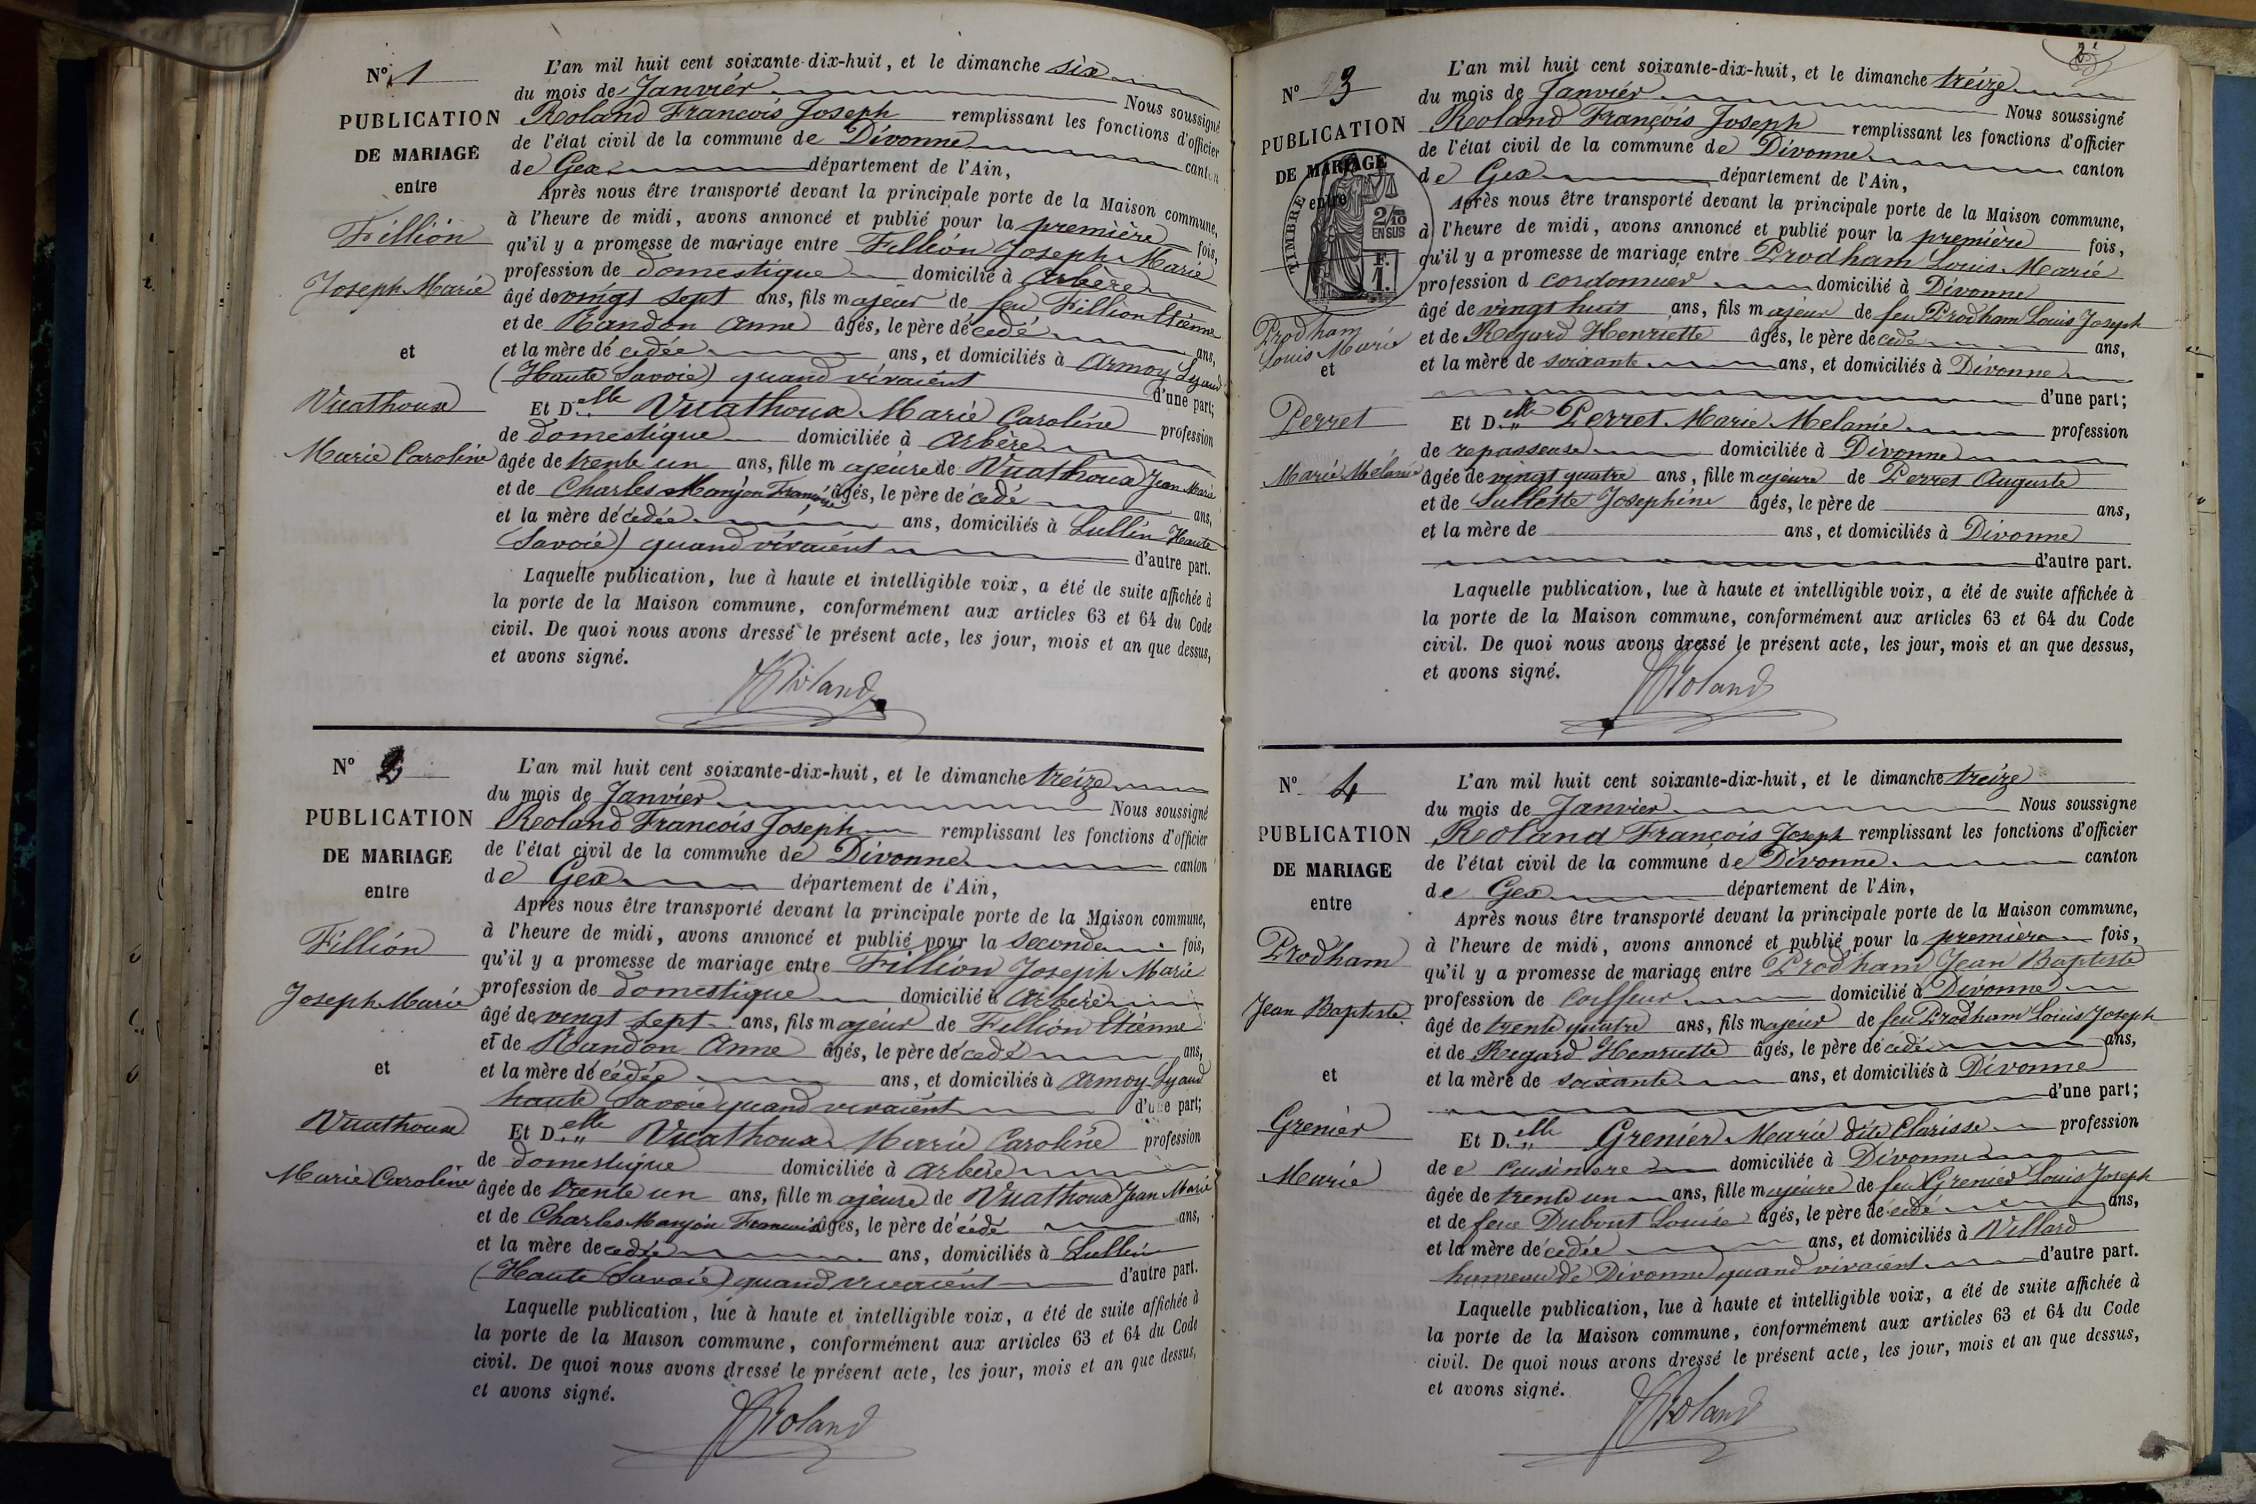 N° 1
PUBLICATION
DE MARIAGE
entre
Fillion
Joseph Marie
et
Vuathoux
Marie Caroline
L'an mil huit cent soixante-dix-huit, et le dimanche six
du mois de Janvier Nous soussigné
Roland François Joseph remplissant les fonctions d'officier
de l'état civil de la commune de Divonne canton
de Gex département de l'Ain,
Après nous être transporté devant la principale porte de la Maison commune,
à l'heure de midi, avons annoncé et publié pour la première fois,
qu'il y a promesse de mariage entre Fillion Joseph Marie
profession de domestique domicilié à Arbère
âgé de vingt sept ans, fils majeur de feu Fillion Etienne
et de Randon Anne âgés, le père décédé ans,
et la mère décédée ans, et domiciliés à Armoy Lyaud
(Haute Savoie) quand vivaient d'une part;
Et Delle Vuathoux Marie Caroline profession
de domestique domiciliée à Arbère
âgée de trente un ans, fille majeure de Vuathoux Jean Marie
et de Charles Marjon Françoise âgés, le père décédé ans,
et la mère décédée ans, domiciliés à Lullin Haute
Savoie) quand vivaient d'autre part.
Laquelle publication, lue à haute et intelligible voix, a été de suite affichée à
la porte de la Maison commune, conformément aux articles 63 et 64 du Code
civil. De quoi nous avons dressé le présent acte, les jour, mois et an que dessus,
et avons signé.
Roland
N° 2
PUBLICATION
DE MARIAGE
entre
Fillion
Joseph Marie
et
Vuathoux
Marie Caroline
L'an mil huit cent soixante-dix-huit, et le dimanche treize
du mois de Janvier Nous soussigné
Roland François Joseph remplissant les fonctions d'officier
de l'état civil de la commune de Divonne canton
de Gex département de l'Ain,
Après nous être transporté devant la principale porte de la Maison commune,
à l'heure de midi, avons annoncé et publié pour la seconde fois,
qu'il y a promesse de mariage entre Fillion Joseph Marie
profession de domestique domicilié à Arbère
âgé de vingt sept ans, fils majeur de Fillion Etienne
et de Randon Anne âgés, le père décédé ans,
et la mère décédée ans, et domiciliés à Armoy Lyaud
haute Savoie quand vivaient d'une part;
Et Delle Vuathoux Marie Caroline profession
de domestique domiciliée à Arbère
âgée de trente un ans, fille majeure de Vuathoux Jean Marie
et de Charles Marjon Francoise âgés, le père décédé ans,
et la mère decedée ans, domiciliés à Lullin
(Haute Savoie) quand vivaient d'autre part.
Laquelle publication, lue à haute et intelligible voix, a été de suite affichée à
la porte de la Maison commune, conformément aux articles 63 et 64 du Code
civil. De quoi nous avons dressé le présent acte, les jour, mois et an que dessus,
et avons signé.
Roland
2
N° 3
PUBLICATION
DE MARIAGE
entre
TIMBRE
2/10
EN SUS
F.
1.
Prodham
Louis Marie
et
Perret
Marie Mélanie
L'an mil huit cent soixante-dix-huit, et le dimanche treize
du mois de Janvier Nous soussigné
Roland François Joseph remplissant les fonctions d'officier
de l'état civil de la commune de Divonne canton
de Gex département de l'Ain,
Après nous être transporté devant la principale porte de la Maison commune,
à l'heure de midi, avons annoncé et publié pour la première fois,
qu'il y a promesse de mariage entre Prodham Louis Marie
profession d cordonnier domicilié à Divonne
âgé de vingt huit ans, fils majeur de feu Prodham Louis Joseph
et de Regard Henriette âgés, le père décédé ans,
et la mère de soixante ans, et domiciliés à Divonne
d'une part;
Et Delle Perret Marie Melanie profession
de repasseuse domiciliée à Divonne
âgée de vingt quatre ans, fille majeure de Perret Auguste
et de Josephine âgés, le père de ans,
et la mère de ans, et domiciliés à Divonne
d'autre part.
Laquelle publication, lue à haute et intelligible voix, a été de suite affichée à
la porte de la Maison commune, conformément aux articles 63 et 64 du Code
civil. De quoi nous avons dressé le présent acte, les jour, mois et an que dessus,
et avons signé.
Roland
N° 4
PUBLICATION
DE MARIAGE
entre
Prodham
Jean Baptiste
et
Grenier
Marie
L'an mil huit cent soixante-dix-huit, et le dimanche treize
du mois de Janvier Nous soussigné
Roland François Joseph remplissant les fonctions d'officier
de l'état civil de la commune de Divonne canton
de Gex département de l'Ain,
Après nous être transporté devant la principale porte de la Maison commune,
à l'heure de midi, avons annoncé et publié pour la première fois,
qu'il y a promesse de mariage entre Prodham Jean Baptiste
profession de coiffeur domicilié à Divonne
âgé de trente quatre ans, fils majeur de feu Prodham Louis Joseph
et de Regard Henriette âgés, le père décédé ans,
et la mère de soixante ans, et domiciliés à Divonne
d'une part;
Et Delle Grenier Marie dite Clarisse profession
de cuisinère domiciliée à Divonne
âgée de trente un ans, fille majeure de feu Grenier Louis Joseph
et de feue Dubout Louise âgés, le père décédé ans,
et la mère décédée ans, et domiciliés à Villard
hameau de Divonne quand vivaient d'autre part.
Laquelle publication, lue à haute et intelligible voix, a été de suite affichée à
la porte de la Maison commune, conformément aux articles 63 et 64 du Code
civil. De quoi nous avons dressé le présent acte, les jour, mois et an que dessus,
et avons signé.
Roland